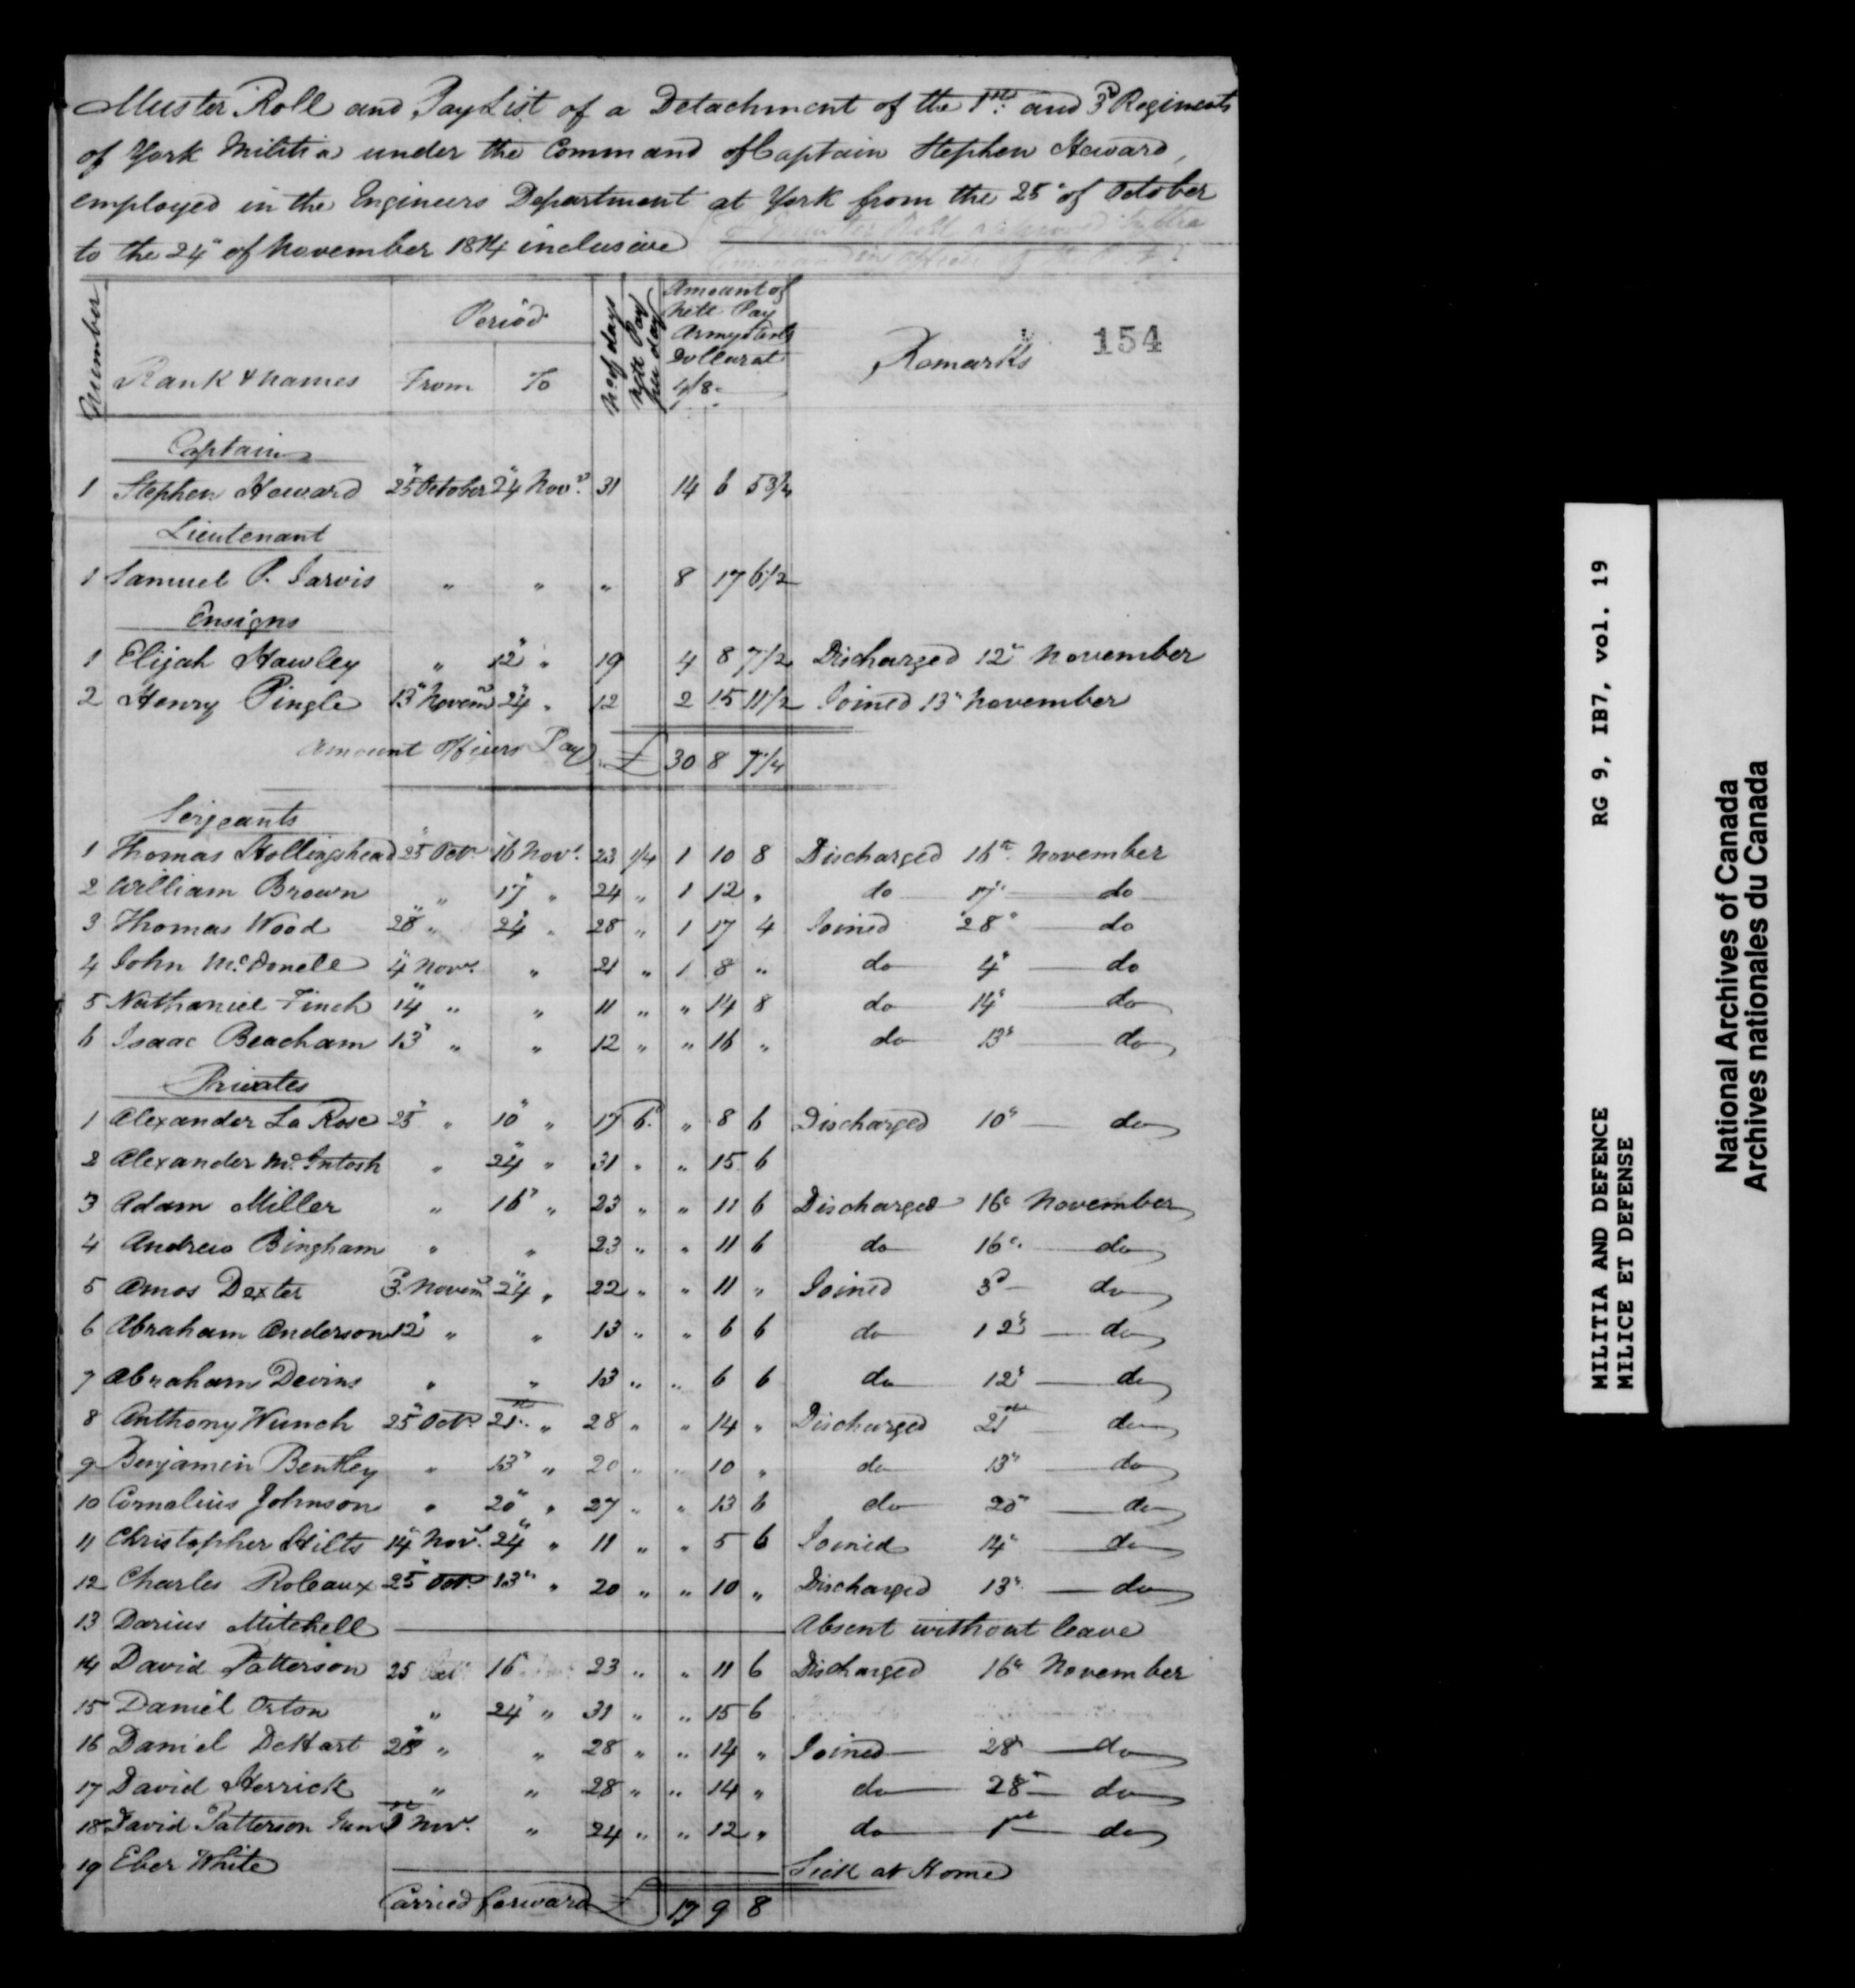 Muster Roll and Pay List of a Detachment of the 1st and 3d Regiments
of York Militia under the Command of Captain Stephen Howard,
employed in the Engineers Department at York from the 25" of October
to the 24" of November 1814 inclusive
Number Rank & names Period From To No of days Nett Pay per day Amount of Nett Pay Army Sterlg Dollar at 4/8 Remarks 154
Captain
1 Stephen Howard 25" October 24" Novr. 31 14 6 5 3/4
Lieutenant
1 Samuel P. Jarvis " " " 8 17 6 1/2
Ensigns
1 Elijah Hawley " 12" " 19 4 8 7 1/2 Discharged 12" November
2 Henry Pingle 13" Novemr 24" " 12 2 15 11 1/2 Joined 13" November
Amount Officers Pay £ 30 8 7 1/4
Serjeants
1 Thomas Hollingshead 25" Octr. 16" Novr. 23 1/4 1 10 8 Discharged 16th November
2 William Brown " " 17" " 24 " 1 12 " do 17" do
3 Thomas Wood 28" " 24" " 28 " 1 17 4 Joined 28" do
4 John McDonell 4" Novr. " 21 " 1 8 " do 4" do
5 Nathaniel Finch 14" " " 11 " " 14 8 do 14" do
6 Isaac Beacham 13" " " 12 " " 16 " do 13" do
Privates
1 Alexander La Rose 25" " 10" " 17 6d. " 8 6 Discharged 10" do
2 Alexander McIntosh " 24" " 31 " " 15 6
3 Adam Miller " 16" " 23 " " 11 6 Discharged 16" November
4 Andrew Bingham " " 23 " " 11 6 do 16" do
5 Amos Dexter 3d Novemr 24" " 22 " " 11 " Joined 3d do
6 Abraham Anderson 12" " " 13 " " 6 6 do 12" do
7 Abraham Devins " " 13 " " 6 6 do 12" do
8 Anthony Wunch 25" Octr. 21st " 28 " " 14 " Discharged 21st do
9 Benjamin Bentley " 13" " 20 " " 10 " do 13" do
10 Cornelius Johnson " 20" " 27 " " 13 6 do 20" do
11 Christopher Hilts 14" Novr. 24" " 11 " " 5 6 Joined 14" do
12 Charles Roleaux 25" Octr. 13" " 20 " " 10 " Discharged 13" do
13 Darius Mitchell Absent without leave
14 David Patterson 25 Octr 16" 23 " " 11 6 Discharged 16" November
15 Daniel Orton " 24" " 31 " " 15 6
16 Daniel DeHart 28" " " 28 " " 14 " Joined 28" do
17 David Herrick " " 28 " " 14 " do 28" do
18 David Patterson Junr 1st Novr. " 24 " " 12 " do 1st do
19 Eber White Sick at Home
Carried forward £ 17 9 8
MILITIA AND DEFENCE RG 9, IB7, vol. 19
MILICE ET DEFENSE
National Archives of Canada
Archives nationales du Canada